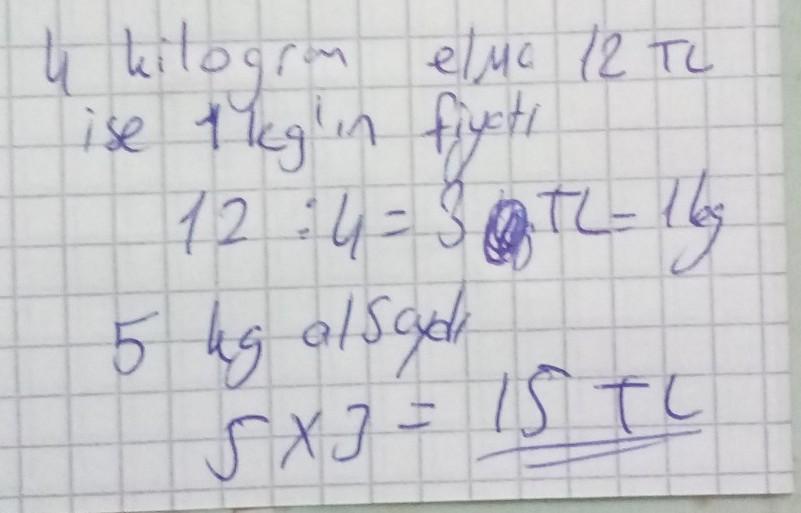 4 kilogram elma 12 TL
ise 1 kg'ın fiyatı
12 : 4 = 3 TL = 1 kg
5 kg alsaydı
5 x 3 = 15 TL